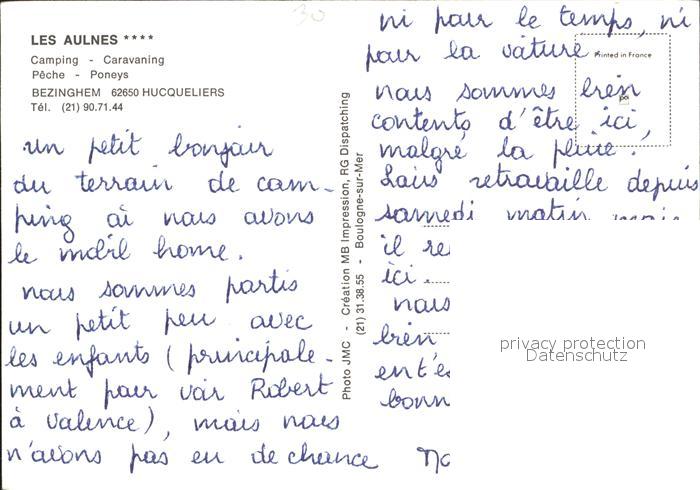 LES AULNES ****
Camping - Caravaning
Pêche - Poneys
BEZINGHEM 62650 HUCQUELIERS
Tél. (21) 90.71.44
un petit bonjour
du terrain de cam-
ping où nous avons
le mobil home.
nous sommes partis
un petit peu avec
les enfants (principale-
ment pour voir Robert
à Valence), mais nous
n'avons pas eu de chance
Photo JMC - Création MB Impression, RG Dispatching
(21) 31.38.55 - Boulogne-sur-Mer
30
ni pour le temps, ni
pour la voiture
Printed in France
nous sommes bien
contents d'être ici,
malgré la pluie.
Louis retravaille depuis
samedi matin mais
il re
ici.
nous
bien
ent'e
bonn
No
privacy protection
Datenschutz